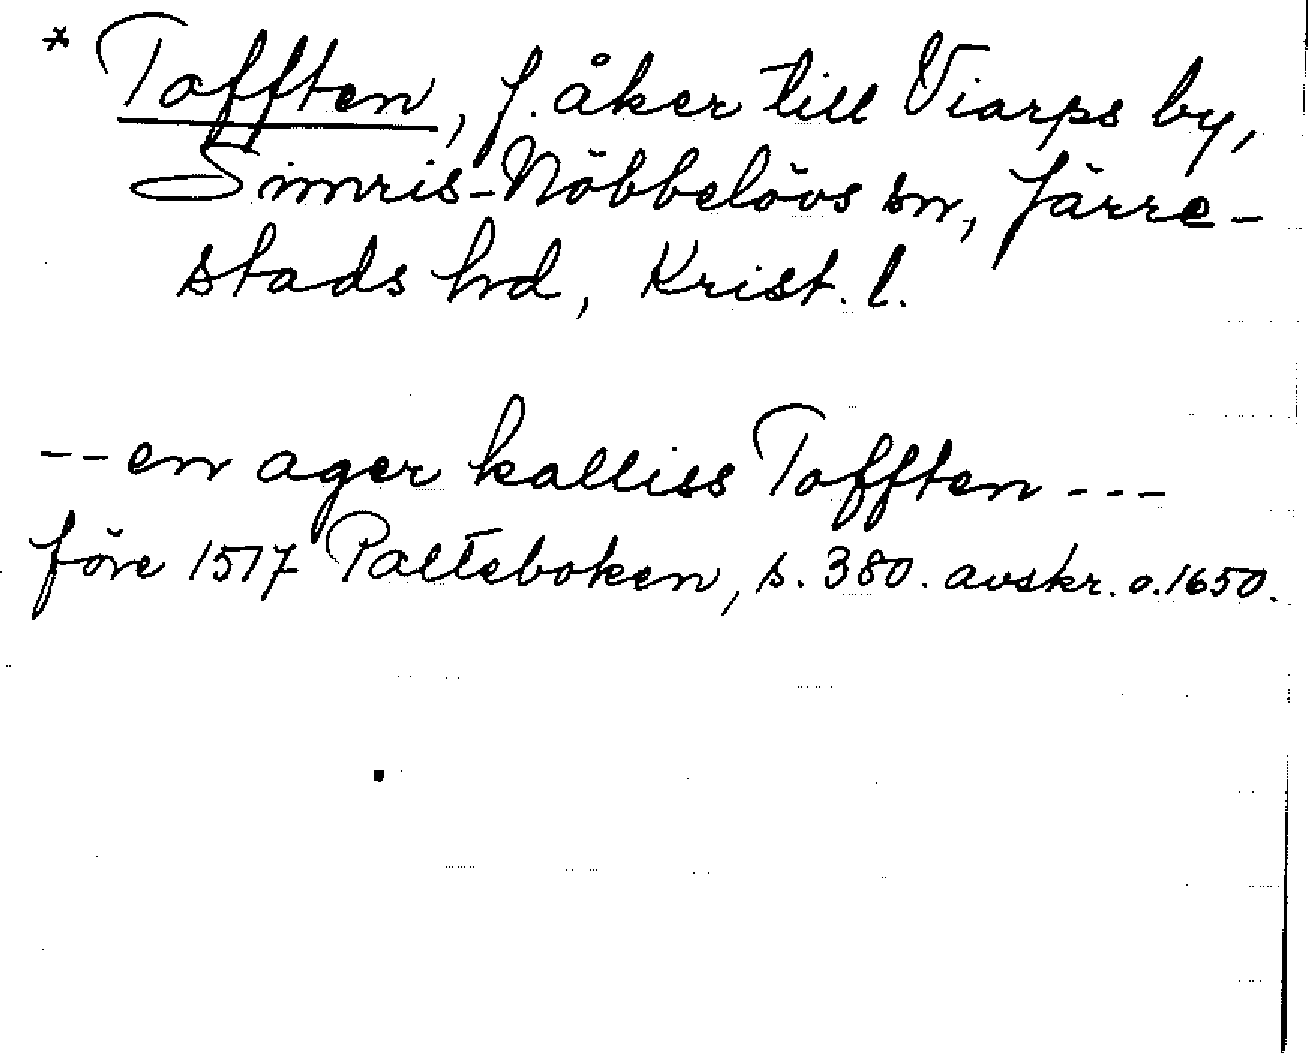 * Tofften, f. åker till Viarps by,
Simris-Nöbbelövs sn, Järre-
stads hd, Krist. l.
-- en ager kalliss Tofften ---
före 1517 Palteboken, s. 380. avskr. o. 1650.